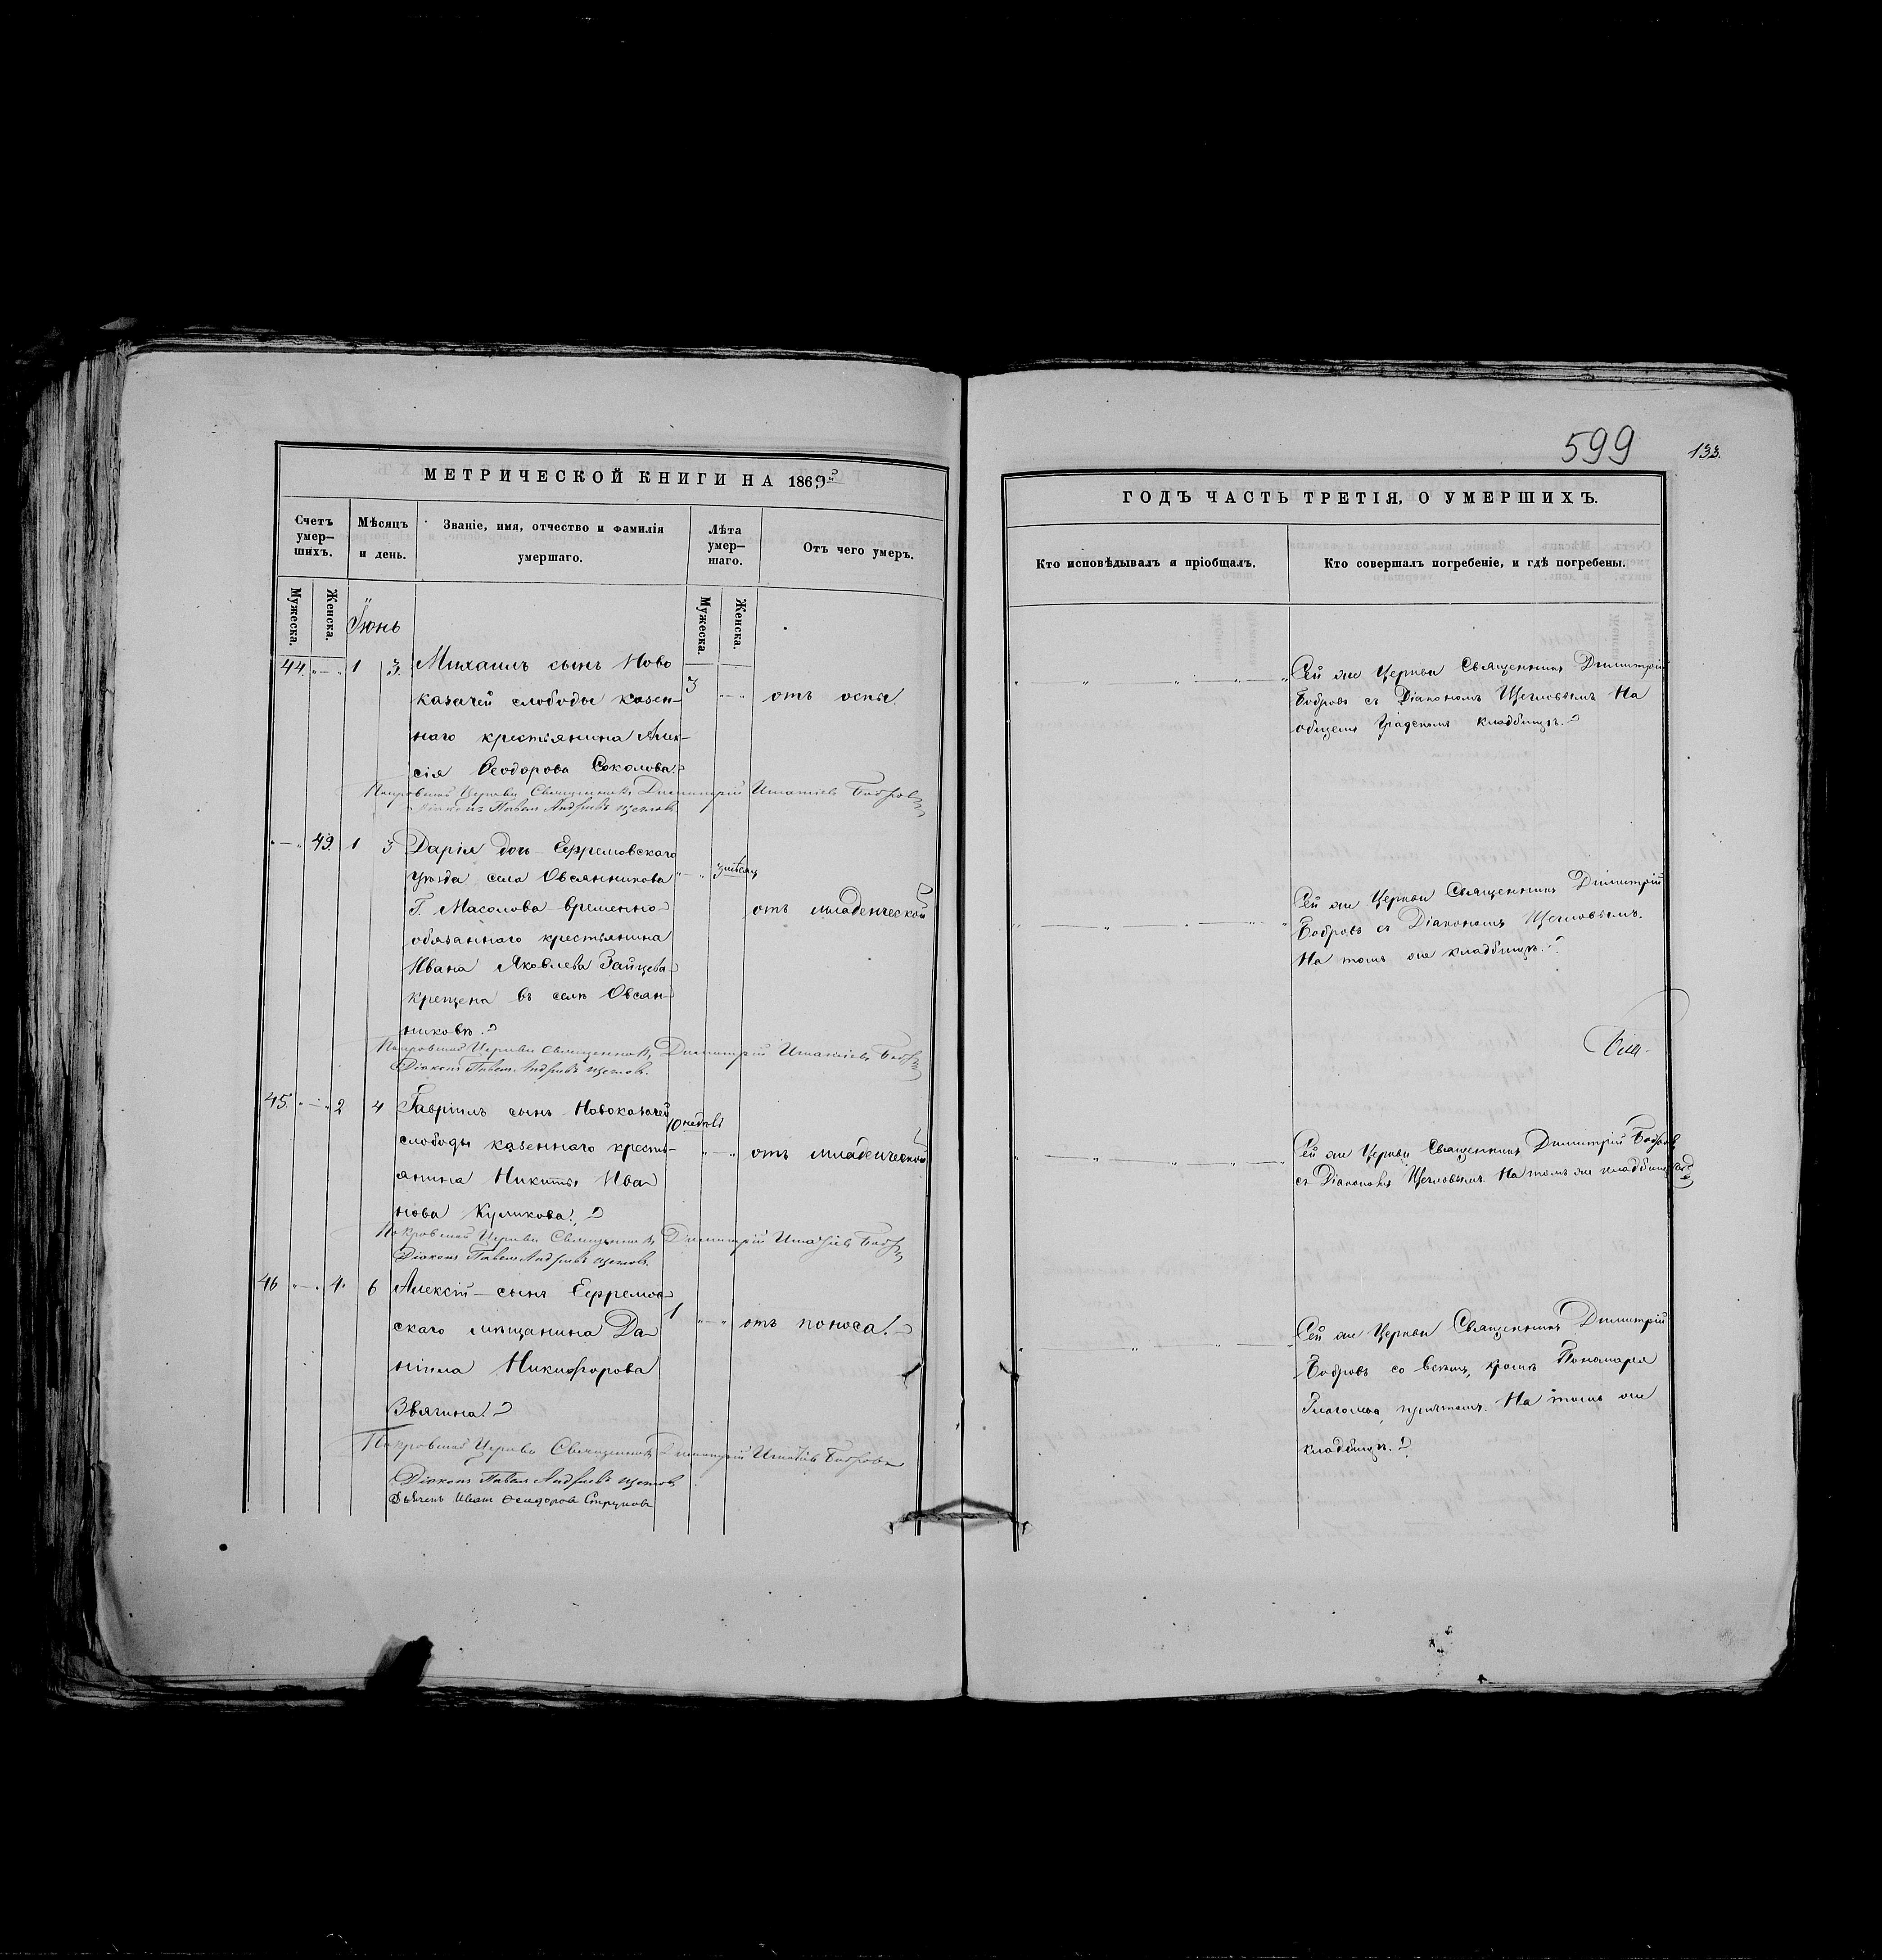 599
133.
МЕТРИЧЕСКОЙ КНИГИ НА 1869й
Счетъ умер-шихъ.
Мѣсяцъ и день.
Званіе, имя, отчество и фамилія умершаго.
Лѣта умер-шаго.
Отъ чего умеръ.
Мужеска.
Женска.
Іюнь
Мужеска.
Женска.
44. „ — „ 1 3. Михаилъ сынъ Ново
казачей слободы казен-
3 „ — „ отъ оспы.
наго крестьянина Алек-
сія Ѳеодорова Соколова.
Покровской Церкви Священникъ Димитрій Игнатіевъ Бобровъ
Діаконъ Павелъ Андреевъ Щегловъ
„ — „ 49. 1 3 Дарія дочь Ефремовскаго
уѣзда села Овсянникова „ — „ 3 мѣсяц
Г. Масолова временно
отъ младенческой
обязаннаго крестьянина
Ивана Яковлева Зайцева
крещена въ селѣ Овсян-
никовѣ.
Покровской Церкви Священникъ Димитрій Игнатіевъ Бобровъ
Діаконъ Павелъ Андреевъ Щегловъ.
45. „ — „ 2 4 Гавріилъ сынъ Новоказачей
10 недѣль
слободы казеннаго кресть-
„ — „ отъ младенческой
янина Никиты Ива
нова Куликова.
Покровской Церкви Священникъ Димитрій Игнатіевъ Бобровъ
Діаконъ Павелъ Андреевъ Щегловъ.
46 „ — „ 4. 6 Алексій сынъ Ефремов
скаго мѣщанина Да
1 „ — „ отъ поноса.
ніила Никифорова
Звягина.
Покровской Церкви Священникъ Димитрій Игнатіевъ Бобровъ
Діаконъ Павелъ Андреевъ Щегловъ
Дьячекъ Иванъ Ѳеодоровъ Струковъ
ГОДЪ ЧАСТЬ ТРЕТІЯ, О УМЕРШИХЪ.
Кто исповѣдывалъ и пріобщалъ.
Кто совершалъ погребеніе, и гдѣ погребены.
Сей же Церкви Священникъ Димитрій
Бобровъ съ Діакономъ Щегловымъ На
общемъ Градскомъ кладбищѣ.
Сей же Церкви Священникъ Димитрій
Бобровъ съ Діакономъ Щегловымъ.
На томъ же кладбищѣ.
Сей же Церкви Священникъ Димитрій Бобровъ
съ Діакономъ Щегловымъ На томъ же кладбищѣ
Сей же Церкви Священникъ Димитрій
Бобровъ со всѣмъ, кромѣ Пономаря
Глаголева, причтомъ. На томъ же
кладбищѣ.